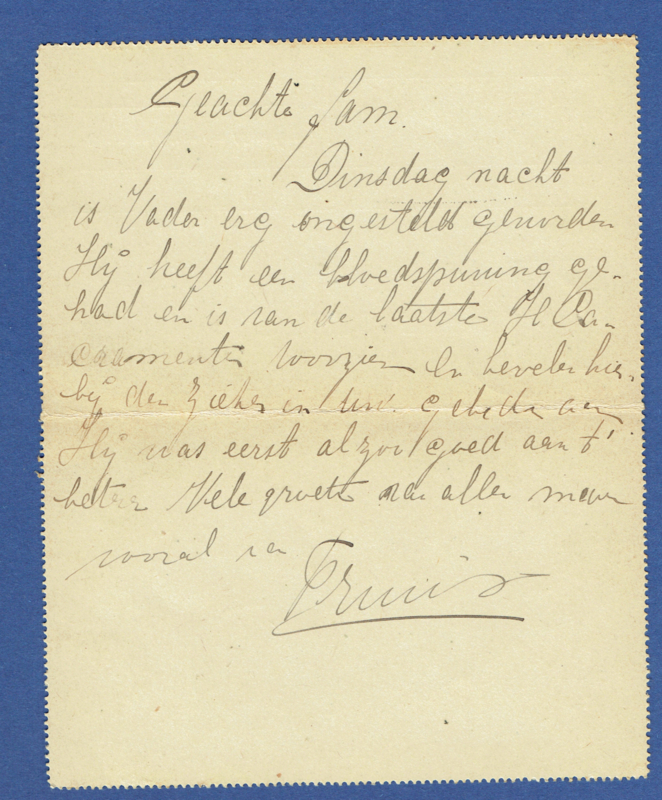 Geachte Fam.
Dinsdag nacht
is Vader erg ongesteld geworden
Hij heeft een bloedspuwing ge-
had en is van de laatste H Sa-
cramenten voorzien en bevelen hier-
bij den zieken in uw gebeden aan
Hij was eerst alzoo goed aan t'
beteren Vele groeten van allen maar
vooral van
Truus